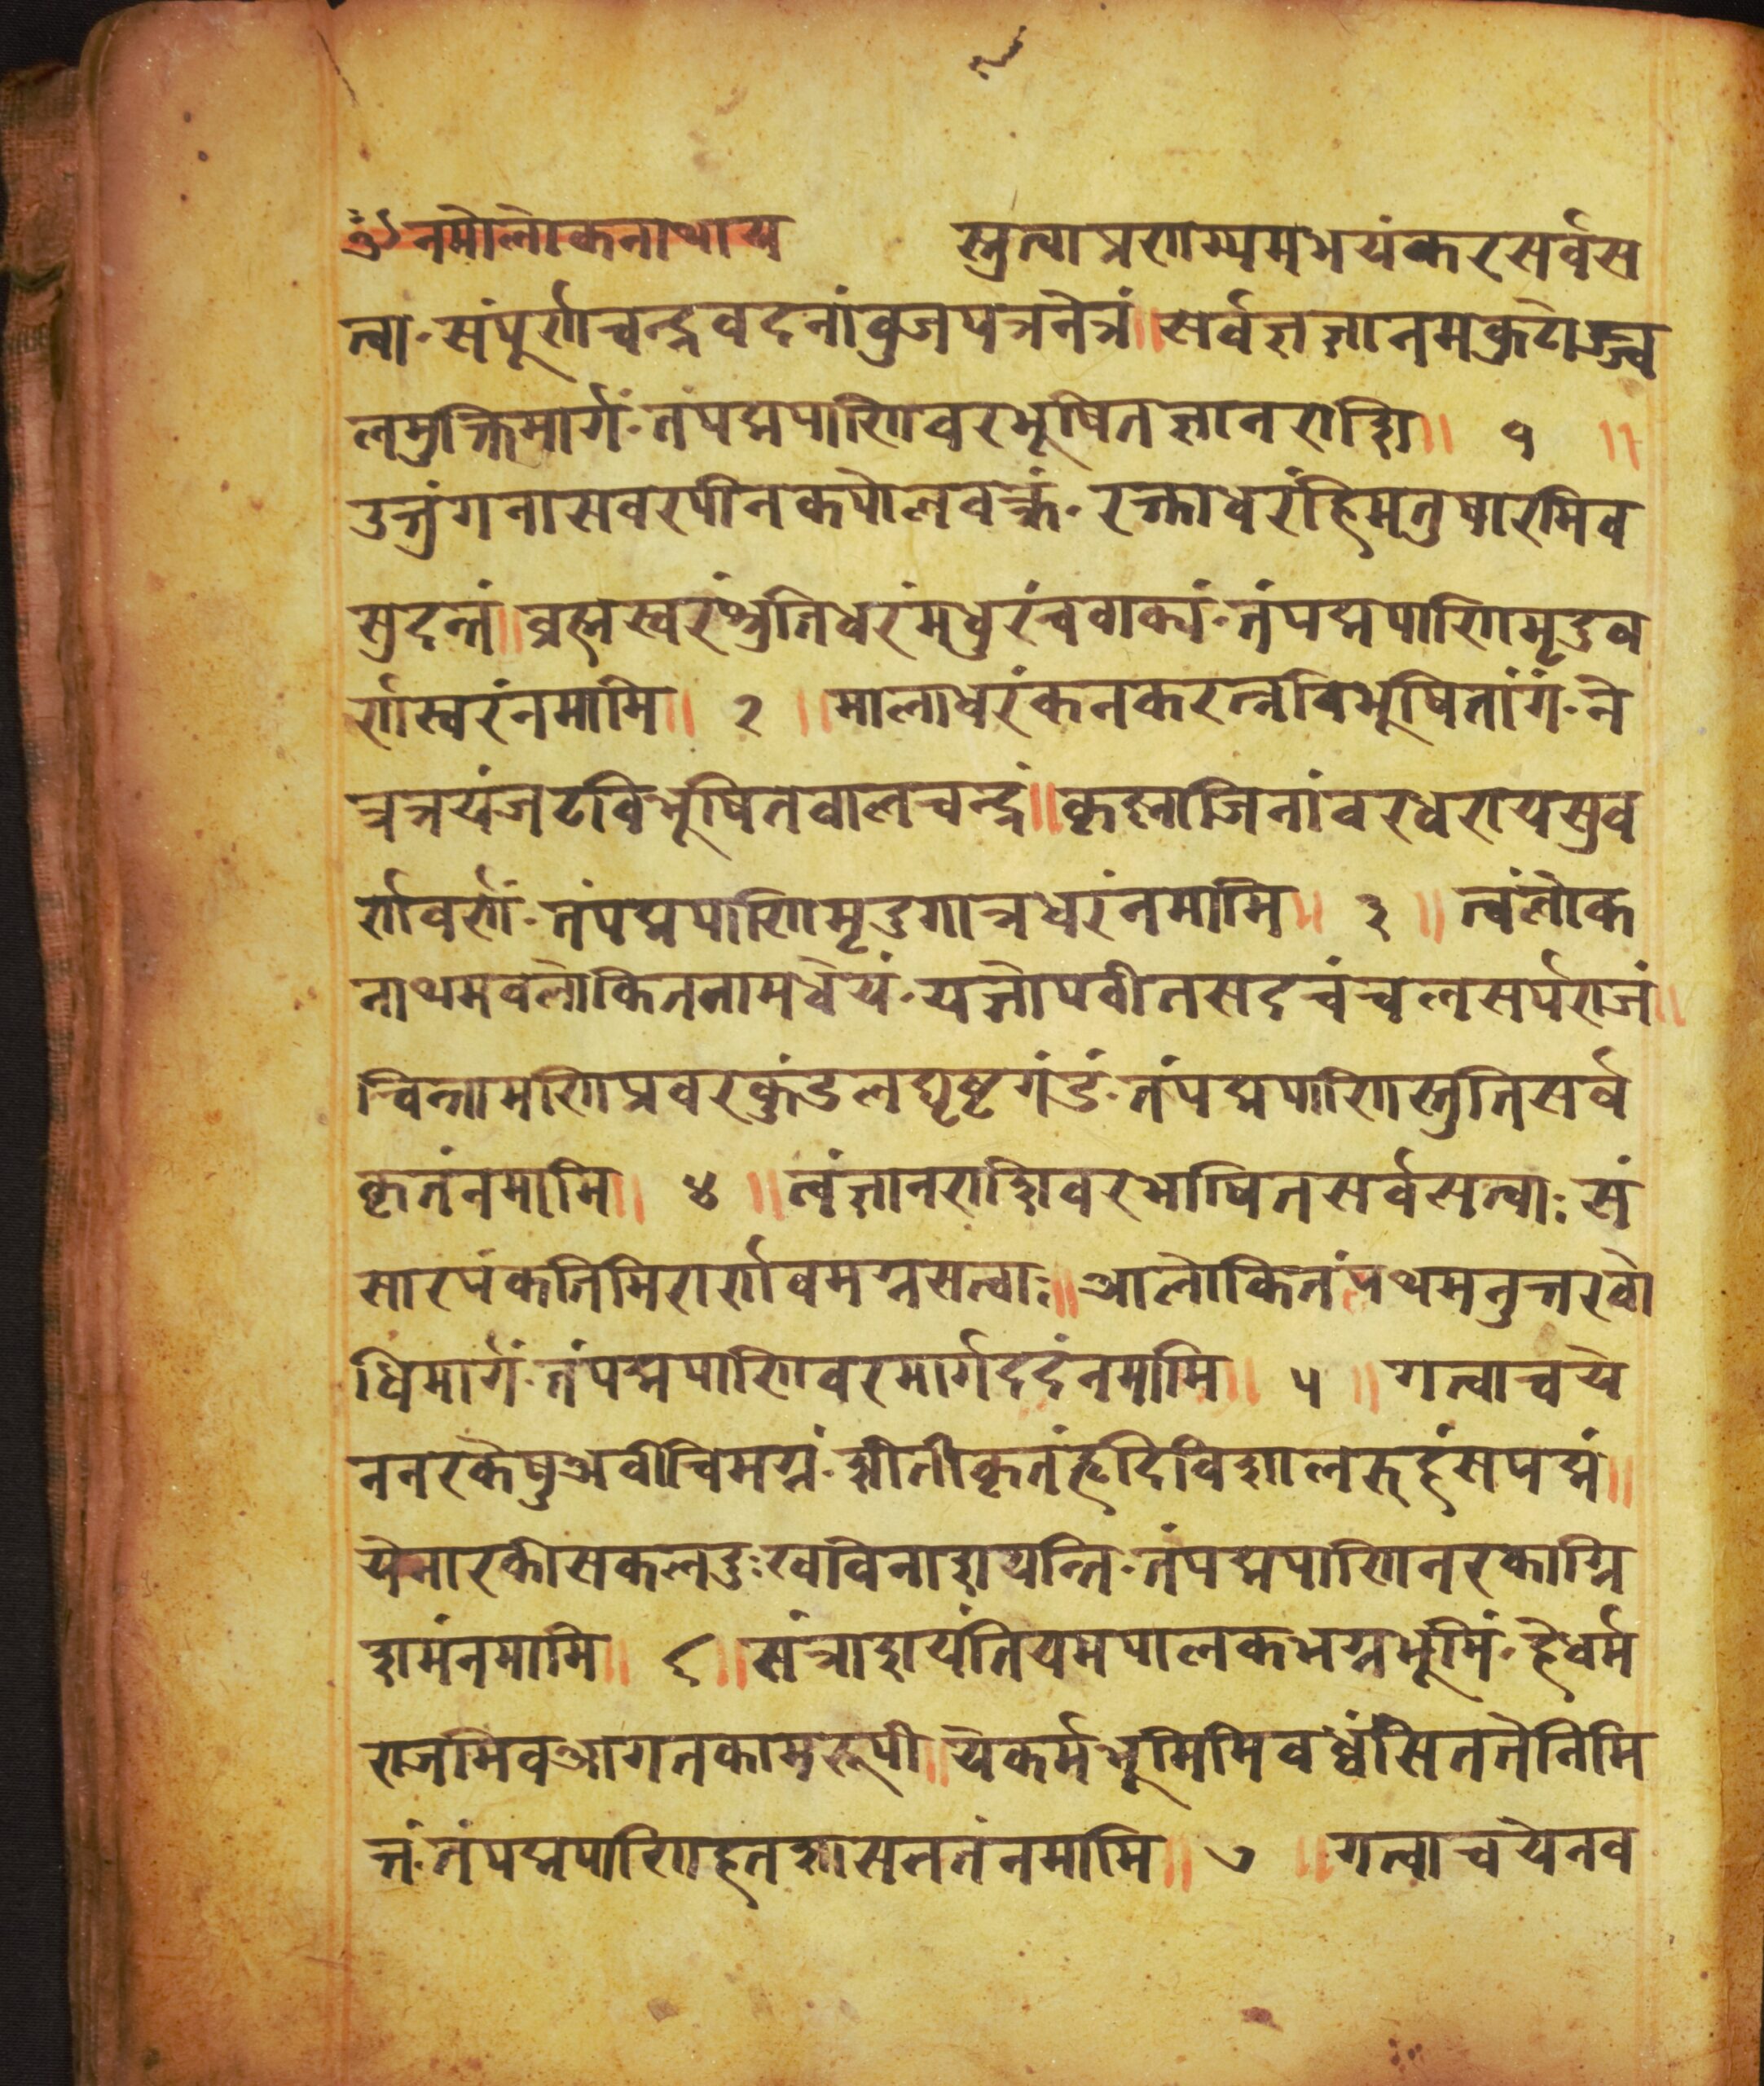 ॐनमोलोकनाथाय स्तुत्वाप्रणम्यमभयंकरसर्वस
त्वा·संपूर्णचन्द्रवदनांवुजपत्रनेत्रं॥सर्वज्ञज्ञानमकुटोज्ज्व
लमुक्तिमार्गं·तंपद्मपाणिवरभूषितज्ञानराशि॥ १ ॥
उत्तुंगनासवरपीनकपोलवक्त्रं·रक्ताधरंहिमतुषारमिव
सुदन्तं॥व्रह्मस्वरंश्रुतिधरंमधुरंचवाक्यं·तंपद्मपाणिमृदुव
र्णस्वरंनमामि॥ २ ॥मालाधरंकनकरत्नविभूषितांगं·ने
त्रत्रयंजटविभूषितवालचन्द्रं॥कृष्नाजिनांवरधरायसुव
र्णवर्णं·तंपद्मपाणिमृदुगात्रधरंनमामि॥ ३ ॥त्वंलोक
नाथमवलोकितनामधेयं·यज्ञोपवीतसदचंचलसर्पराजं॥
चिन्तामणिप्रवरकुंडलघृष्टगंडं·तंपद्मपाणिस्तुतिसर्व
कृतंनमामि॥ ४ ॥त्वंज्ञानराशिवरभाषितसर्वसत्वाः सं
सारपंकतिमिरार्णवमग्नसत्वाः॥आलोकितंपथमनुत्तरवो
धिमार्गं·तंपद्मपाणिवरमार्गददंनमामि॥ ५ ॥गत्वाचये
ननरकेषुअवीचिमग्नं·शीतीकृतंहृदिविशालरुहंसपद्मं॥
येनारकीसकलदुःखविनाशयन्ति·तंपद्मपाणिनरकाग्नि
शमंनमामि॥ ६॥संत्राशयंतियमपालकभग्नभूमिं·हेधर्म
राजमिवआगतकामरूपी॥येकर्मभूमिमिवध्वंसिततेनिमि
त्तं·तंपद्मपाणिहतशासनतंनमामि॥ ७ ॥गत्वाचयेनव